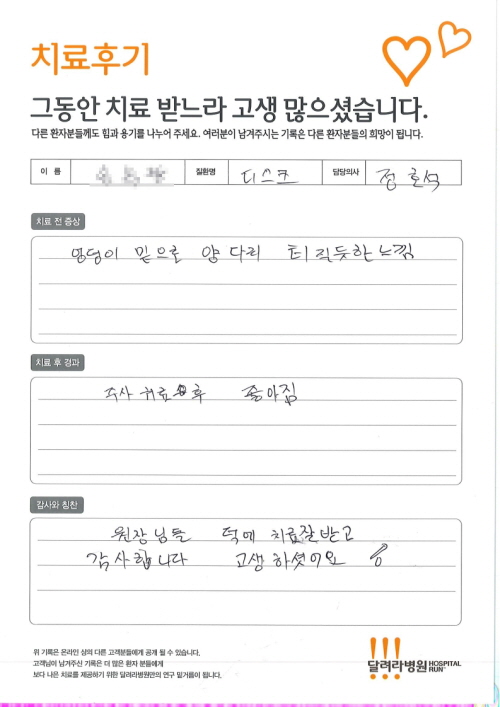 치료후기
그동안 치료 받느라 고생 많으셨습니다.
다른 환자분들께도 힘과 용기를 나누어 주세요. 여러분이 남겨주시는 기록은 다른 환자분들의 희망이 됩니다.
이 름 질환명 디스크 담당의사 정호석
치료 전 증상
엉덩이 밑으로 양 다리 터질듯한 느낌
치료 후 경과
주사 치료 후 좋아짐
감사와 칭찬
원장님들 덕에 치료잘받고
감사합니다 고생하셨어요
위 기록은 온라인 상의 다른 고객분들에게 공개 될 수 있습니다.
고객님이 남겨주신 기록은 더 많은 환자 분들에게
보다 나은 치료를 제공하기 위한 달려라병원만의 연구 밑거름이 됩니다.
달려라병원 HOSPITAL RUN